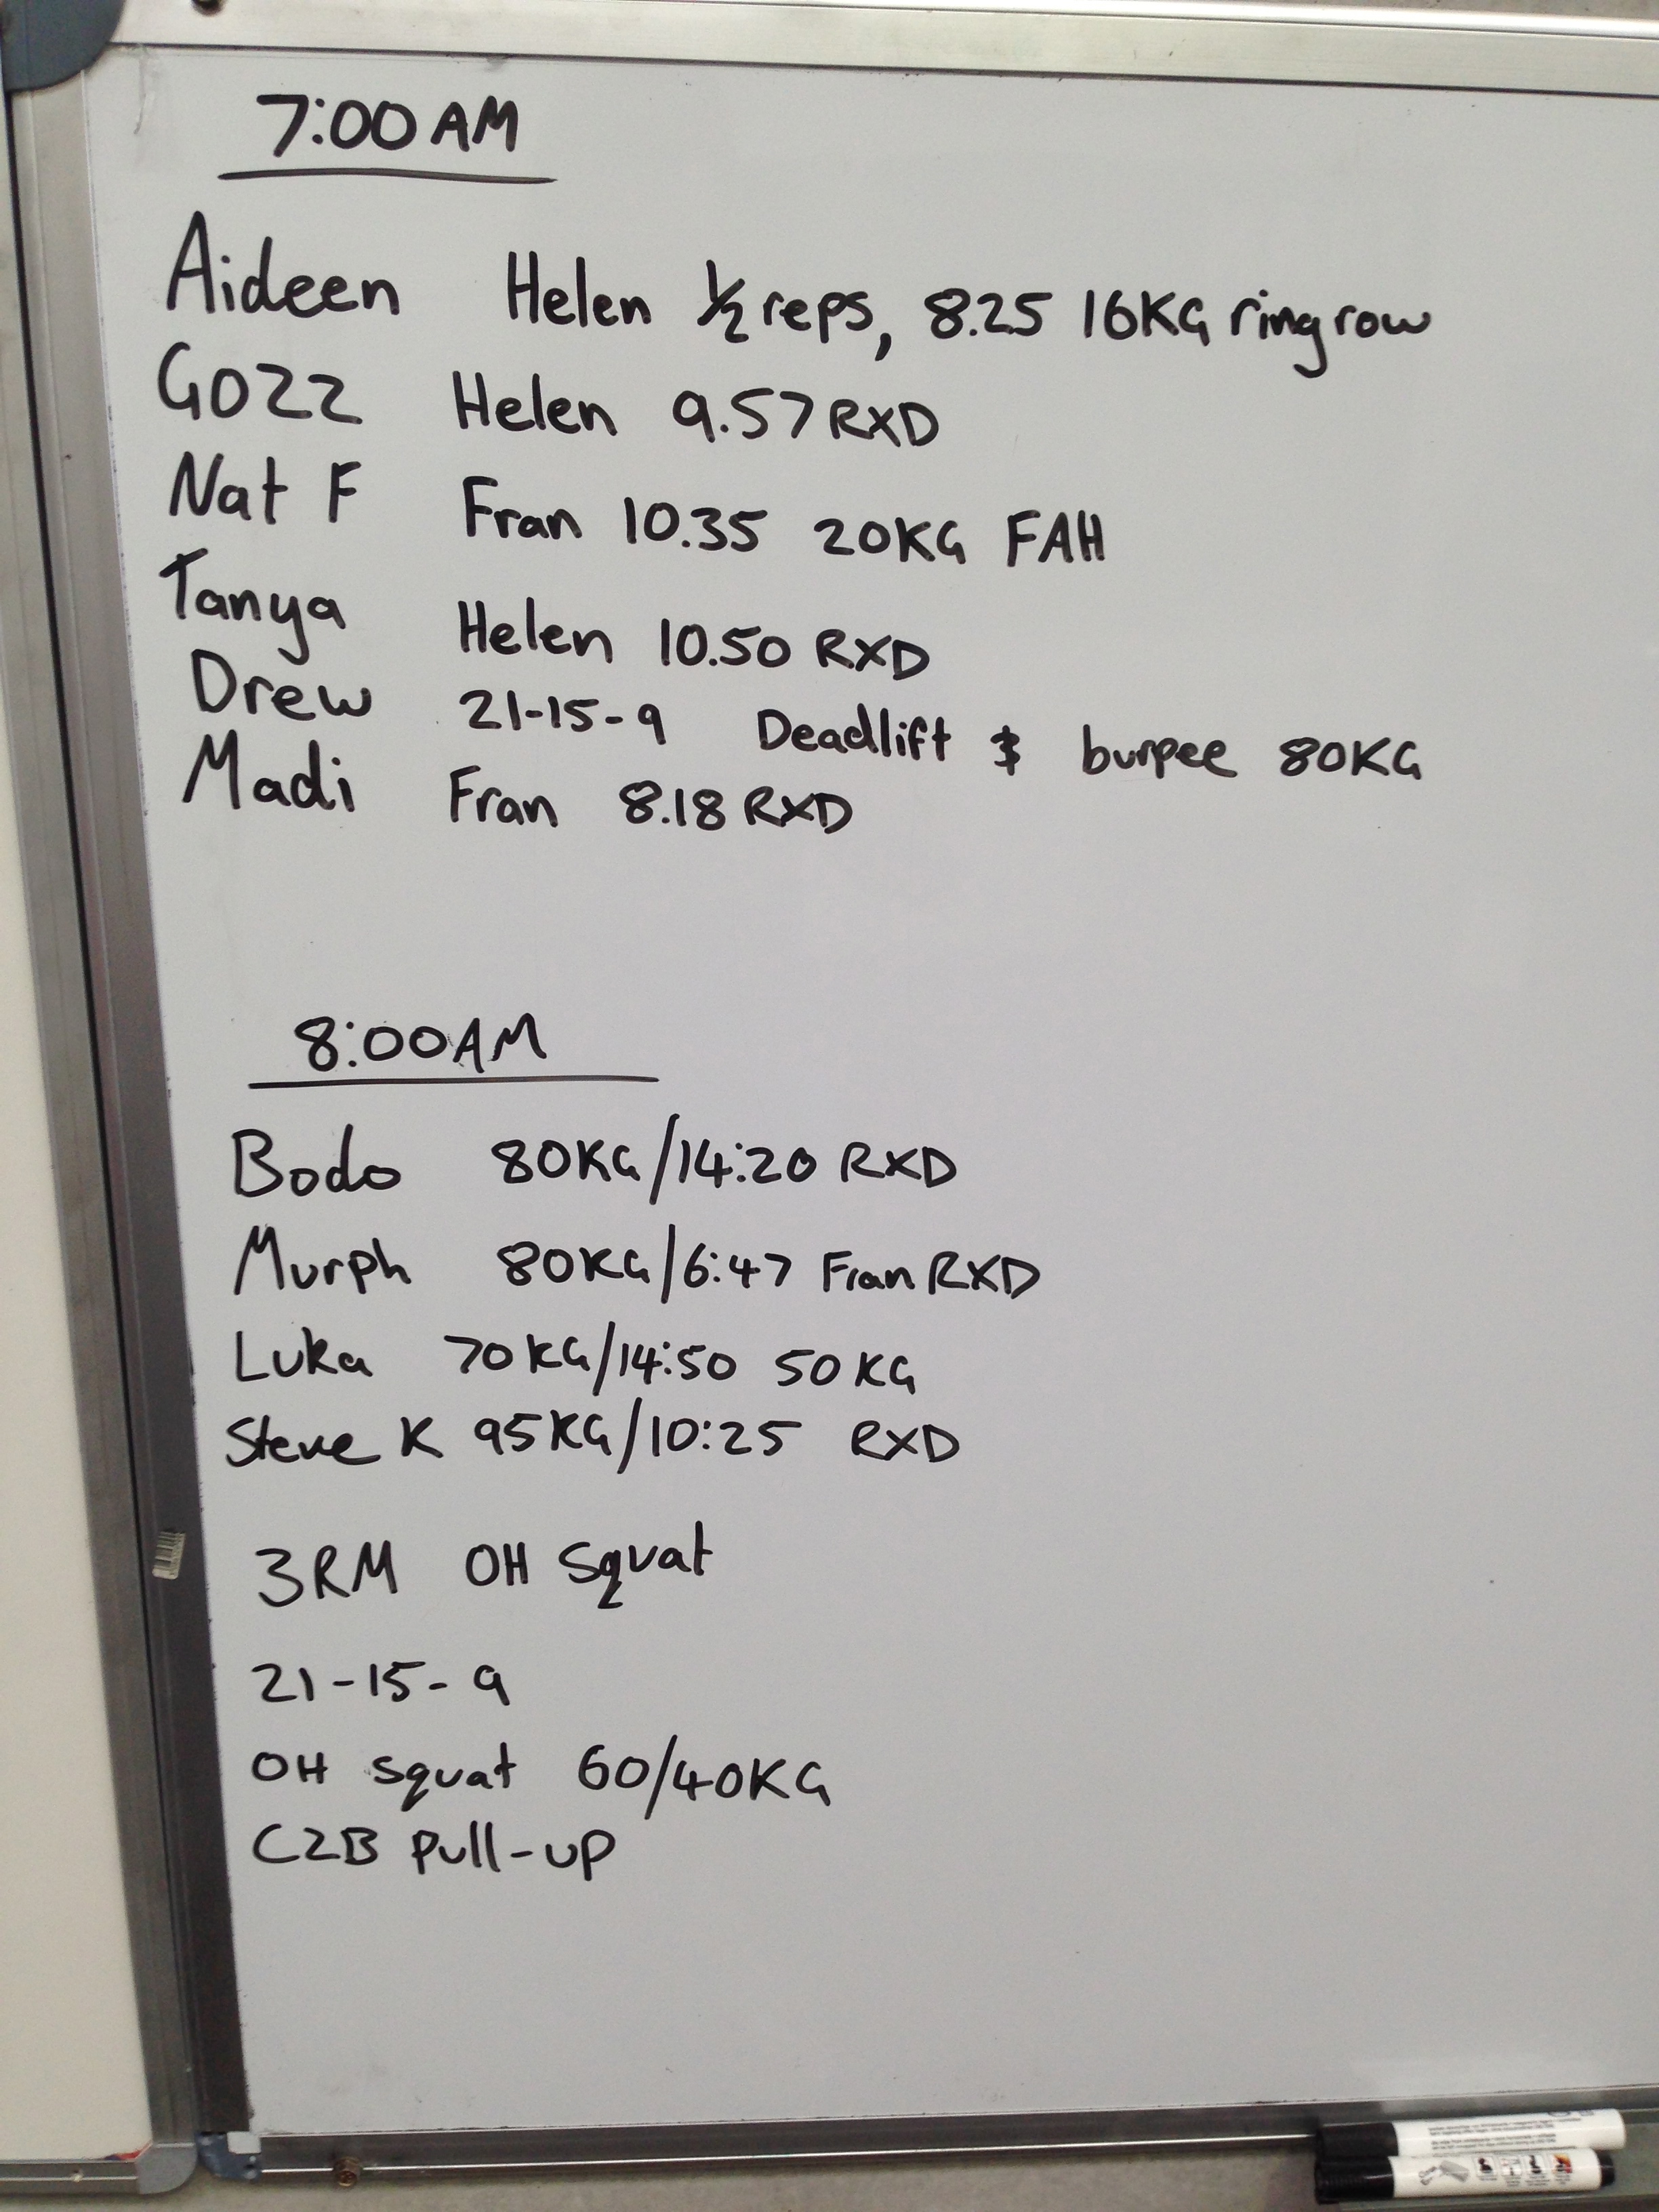 7:00AM
Aideen Helen 1/2 reps, 8.25 16KG ring row
Gozz Helen 9.57 RXD
Nat F Fran 10.35 20KG FAH
Tanya Helen 10.50 RXD
Drew 21-15-9 Deadlift & burpee 80KG
Madi Fran 8.18 RXD
8:00AM
Bodo 80KG/14:20 RXD
Murph 80KG/6:47 Fran RXD
Luka 70KG/14:50 50KG
Steve K 95KG/10:25 RXD
3RM OH Squat
21-15-9
OH squat 60/40KG
C2B Pull-up